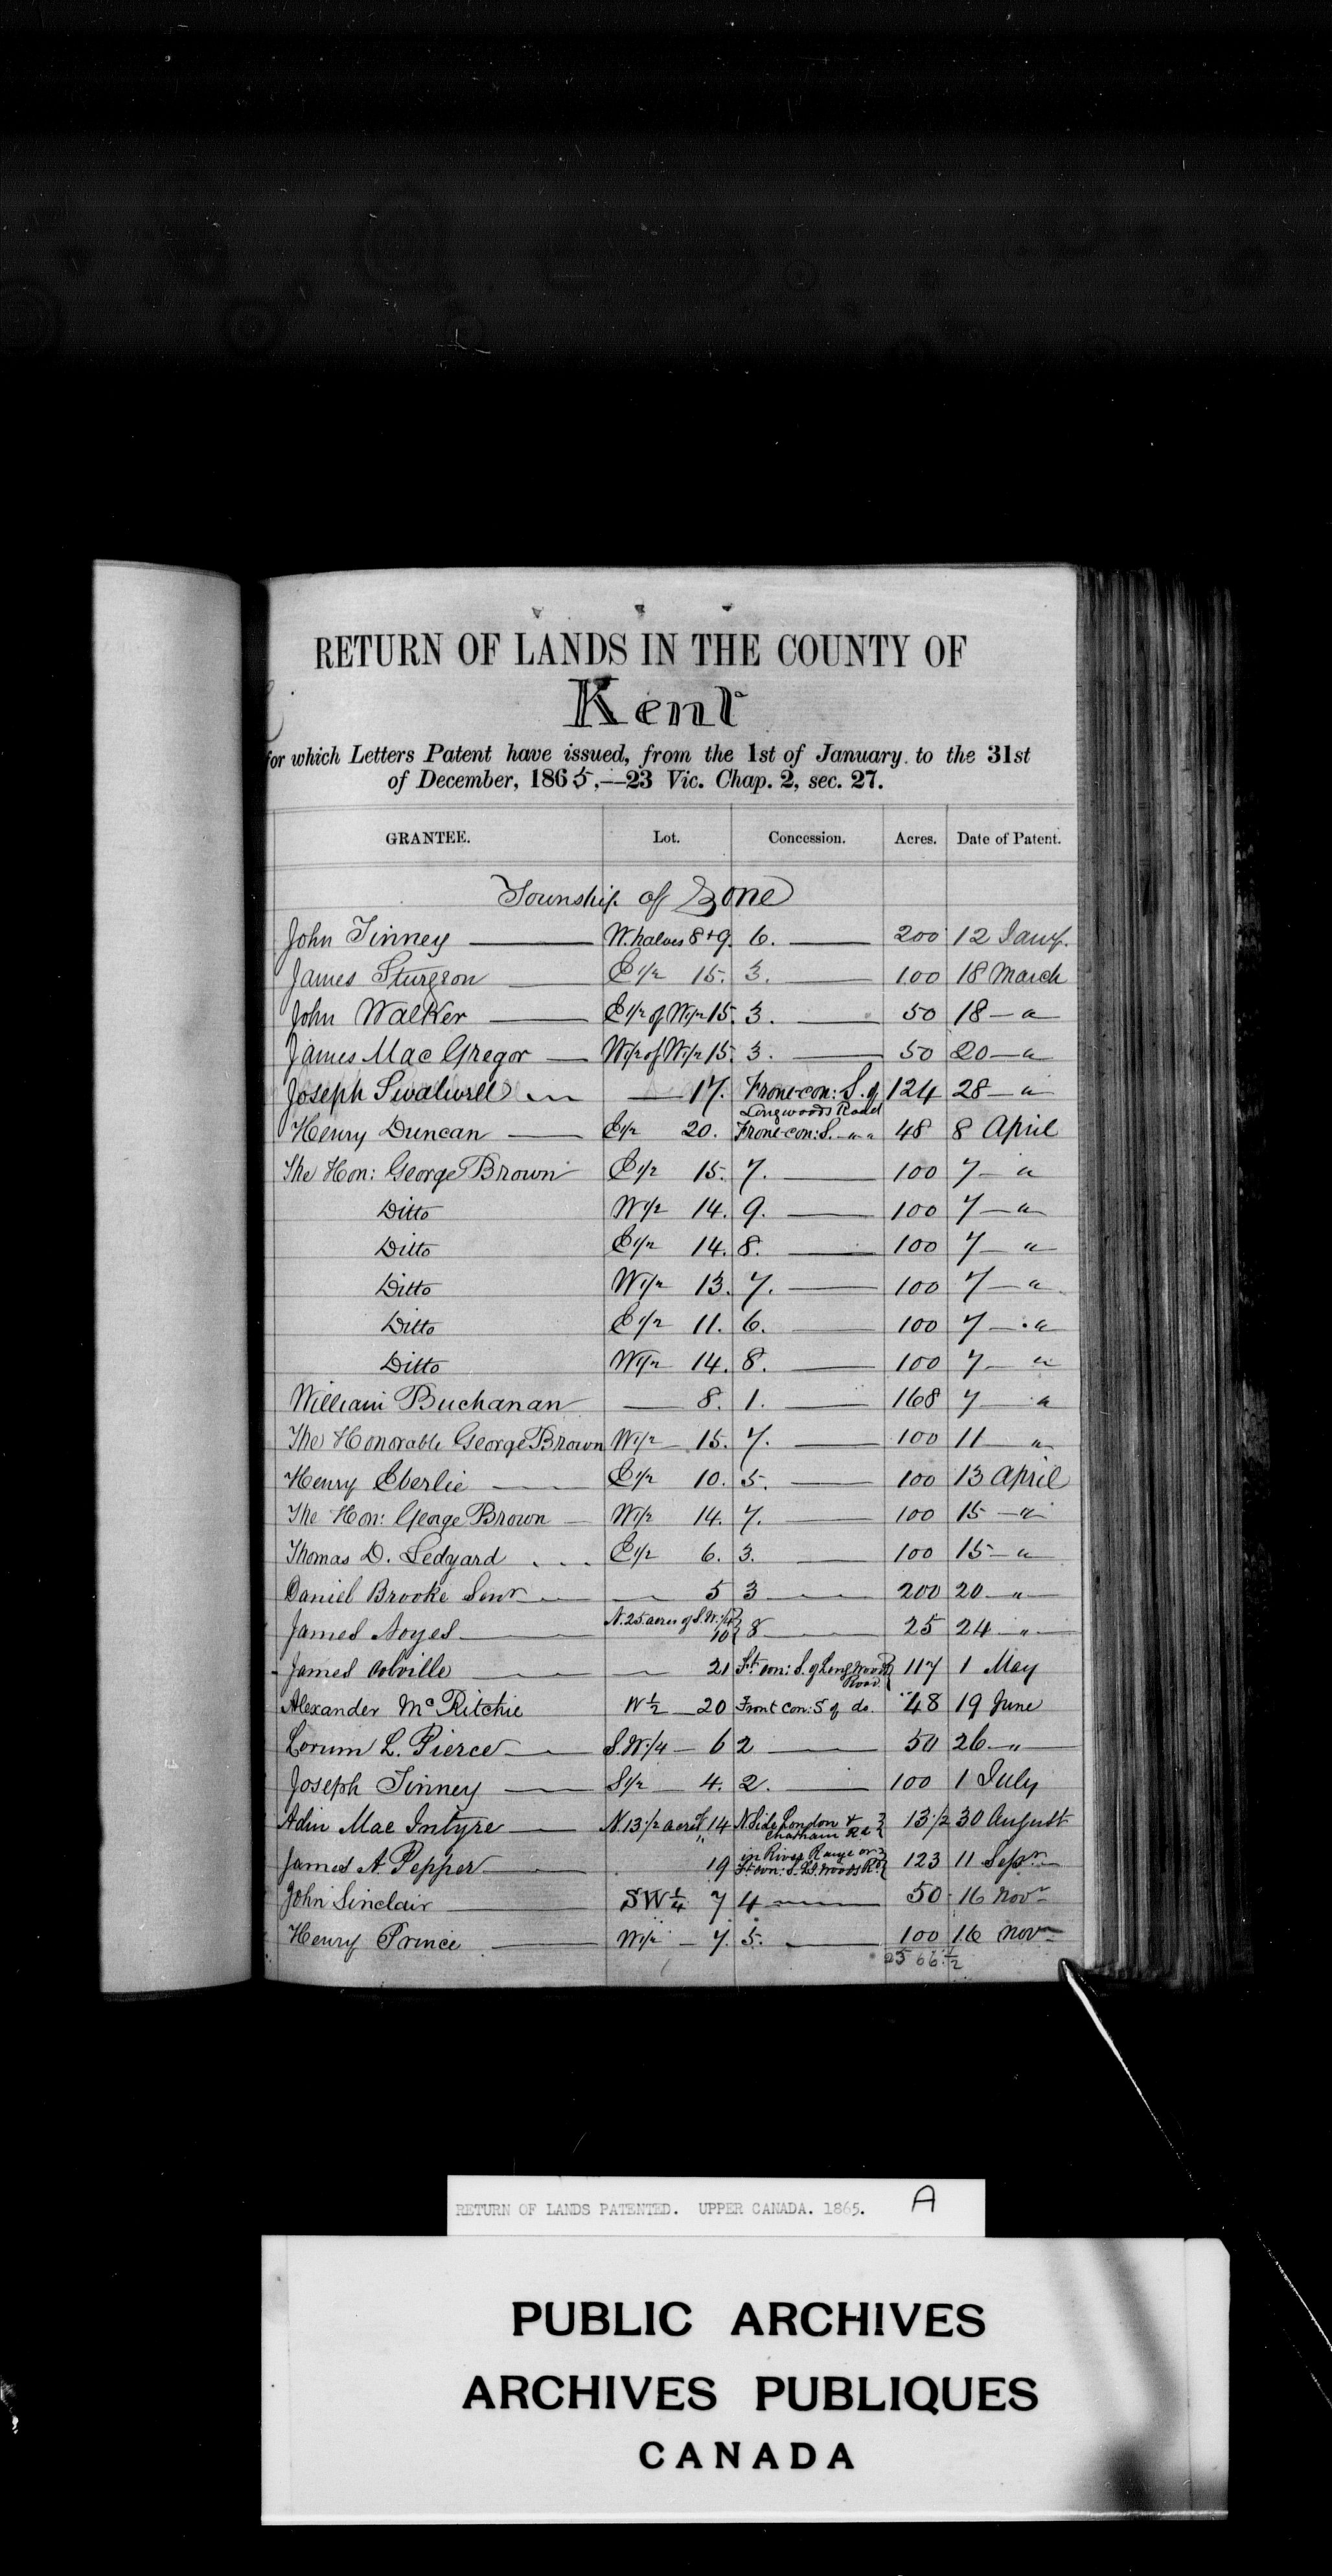 RETURN OF LANDS IN THE COUNTY OF
Kent
for which Letters Patent have issued, from the 1st of January to the 31st
of December, 1865,—23 Vic. Chap. 2, sec. 27.
GRANTEE. Lot. Concession. Acres. Date of Patent.
Township of Zone
John Tinney W. halves 8+9. 6. 200 12 Jany.
James Sturgeon E1/2 15. 3. 100 18 March
John Walker E1/2 of W1/2 15. 3. 50 18 — "
James MacGregor W1/2 of W1/2 15. 3. 50 20 — "
Joseph Swalwell — 17. Front con: S. of Longwoods Road 124 28 — "
Henry Duncan E1/2 20. Front con: S. " " 48 8 April
The Hon: George Brown E1/2 15. 7. 100 7 — "
Ditto W1/2 14. 9. 100 7 — "
Ditto E1/2 14. 8. 100 7 — "
Ditto W1/2 13. 7. 100 7 — "
Ditto E1/2 11. 6. 100 7 — "
Ditto W1/2 14. 8. 100 7 — "
William Buchanan — 8. 1. 168 7 "
The Honorable George Brown W1/2 15. 7. 100 11 "
Henry Eberlie E1/2 10. 5. 100 13 April
The Hon: George Brown W1/2 14. 7. 100 15 — "
Thomas D. Ledyard E1/2 6. 3. 100 15 — "
Daniel Brooke Senr — 5 3 200 20 — "
James Noyes N. 25 acres of S.W. 1/4 10 8 25 24 — "
James Colville — 21 Ft. con: S. of Longwoods Road 117 1 May
Alexander McRitchie W 1/2 20 Front Con: S of do. 48 19 June
Lorum L. Pierce S.W. 1/4 6 2 50 26 "
Joseph Tinney S1/2 4. 2. 100 1 July
Adin MacIntyre N. 13 1/2 acres of 14 N. Side London & Chatham Rd 13 1/2 30 August
James A. Pepper 19 in River Range or Ft con: S. L. Woods Rd 123 11 Sepr
John Sinclair SW 1/4 7 4 50 16 Novr
Henry Prince W1/2 7. 5. 100 16 Novr
2566 1/2
RETURN OF LANDS PATENTED. UPPER CANADA. 1865. A
PUBLIC ARCHIVES
ARCHIVES PUBLIQUES
CANADA